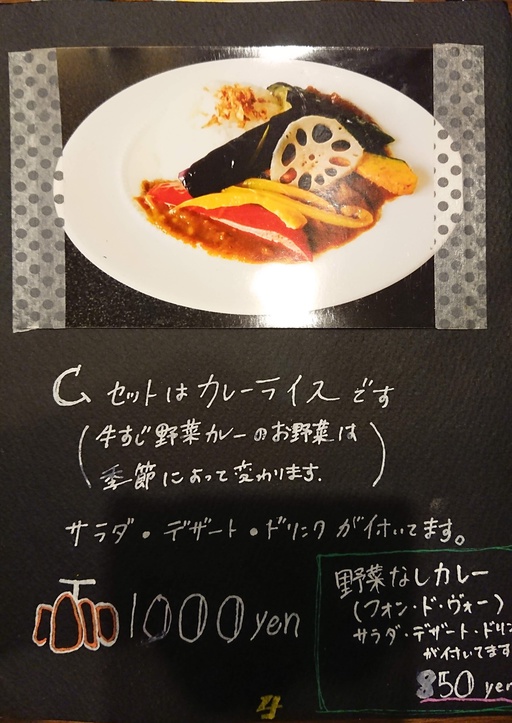 Cセットはカレーライスです
(牛すじ野菜カレーのお野菜は
季節によって変わります.)
サラダ・デザート・ドリンクが付いてます。
1000yen
野菜なしカレー
(フォン・ド・ヴォー)
サラダ・デザート・ドリン
が付いてます
850 yen